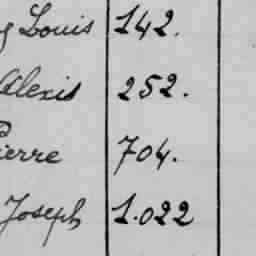 Louis 142.
Alexis 252.
Pierre 704.
Joseph 1.022